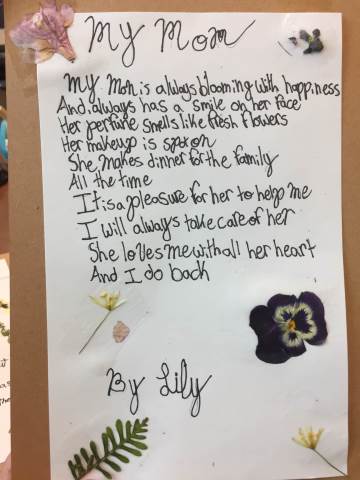 My Mom
My Mom is always blooming with happiness
And always has a smile on her face
Her perfume smells like fresh flowers
Her makeup is spot on
She makes dinner for the family
All the time
It is a pleasure for her to help me
I will always take care of her
She loves me with all her heart
And I do back
By Lily